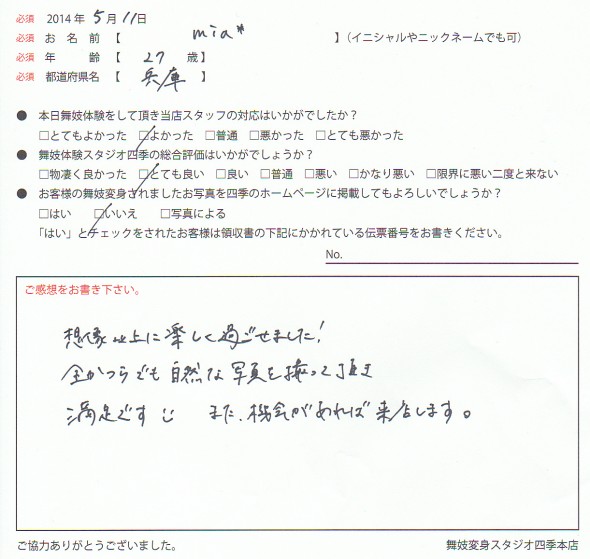 必須 2014年 5月 11日
必須 お名前【 mia* 】(イニシャルやニックネームでも可)
必須 年齢【 27 歳】
必須 都道府県名【 兵庫 】
● 本日舞妓体験をして頂き当店スタッフの対応はいかがでしたか?
□とてもよかった □よかった □普通 □悪かった □とても悪かった
● 舞妓体験スタジオ四季の総合評価はいかがでしょうか?
□物凄く良かった □とても良い □良い □普通 □悪い □かなり悪い □限界に悪い二度と来ない
● お客様の舞妓変身されましたお写真を四季のホームページに掲載してもよろしいでしょうか?
□はい □いいえ □写真による
「はい」とチェックをされたお客様は領収書の下記にかかれている伝票番号をお書きください。
No.
ご感想をお書き下さい。
想像以上に楽しく過ごせました!
全かつらでも自然な写真を撮って頂き
満足です また、機会があれば来店します。
ご協力ありがとうございました。 舞妓変身スタジオ四季本店